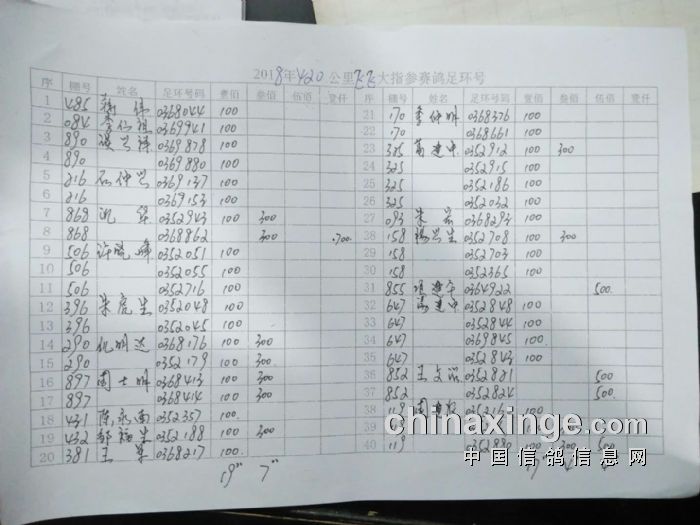 2018年420公里飞飞大指参赛鸽足环号
序 棚号 姓名 足环号码 壹佰 叁佰 伍佰 壹仟
1 485 0368044 100
2 084 0369941 100
3 890 0369878 100
4 890 0369880 100
5 216 0369137 100
6 216 0369153 100
7 868 0352943 100 300
8 868 0368862 300
9 506 许晓峰 0352051 100
10 506 0352055 100
11 506 0352716 100
12 396 朱虎生 0352048 100
13 396 0352045 100
14 290 倪明达 0368176 100 300
15 290 0352179 100 300
16 897 周士明 0368413 100 300
17 897 0368414 100 300
18 431 陈永南 0352357 100
19 432 0352188 100 300
20 381 王军 0368217 100
19" 7"
序 棚号 姓名 足环号码 壹佰 叁佰 伍佰 壹仟
21 170 李仲明 0368376 100
22 170 0368661 100
23 325 葛建中 0352912 100 300
24 325 0352915 100
25 325 0352186 100
26 325 0352032 100
27 093 0368293 100
28 158 杨兴生 0352708 100 300
29 158 0352703 100
30 158 0352365 100
31 855 0364922 500
32 647 0352848 100
33 647 0352844 100
34 647 0369845 100
35 647 0352843 100
36 852 0352821 500
37 852 0352824 500
38 118
39
40 119 0352880 100 300 500
chinaxinge.com
中国信鸽信息网